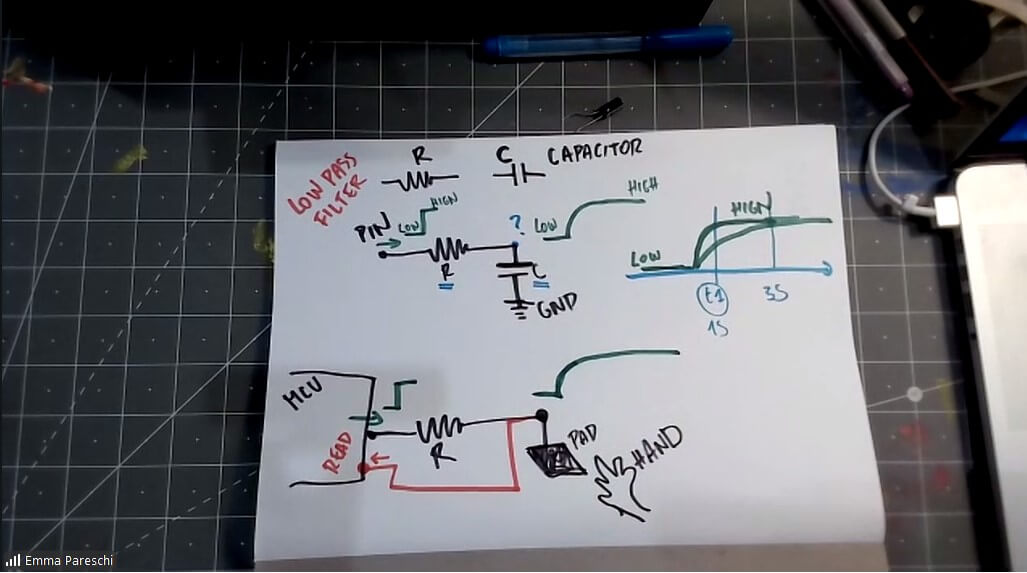 LOW PASS
FILTER
R
C CAPACITOR
PIN
LOW HIGH
?
LOW HIGH
R
C
GND
LOW HIGH
t1
1S
3S
MCU
READ
R
PAD
HAND
Emma Pareschi